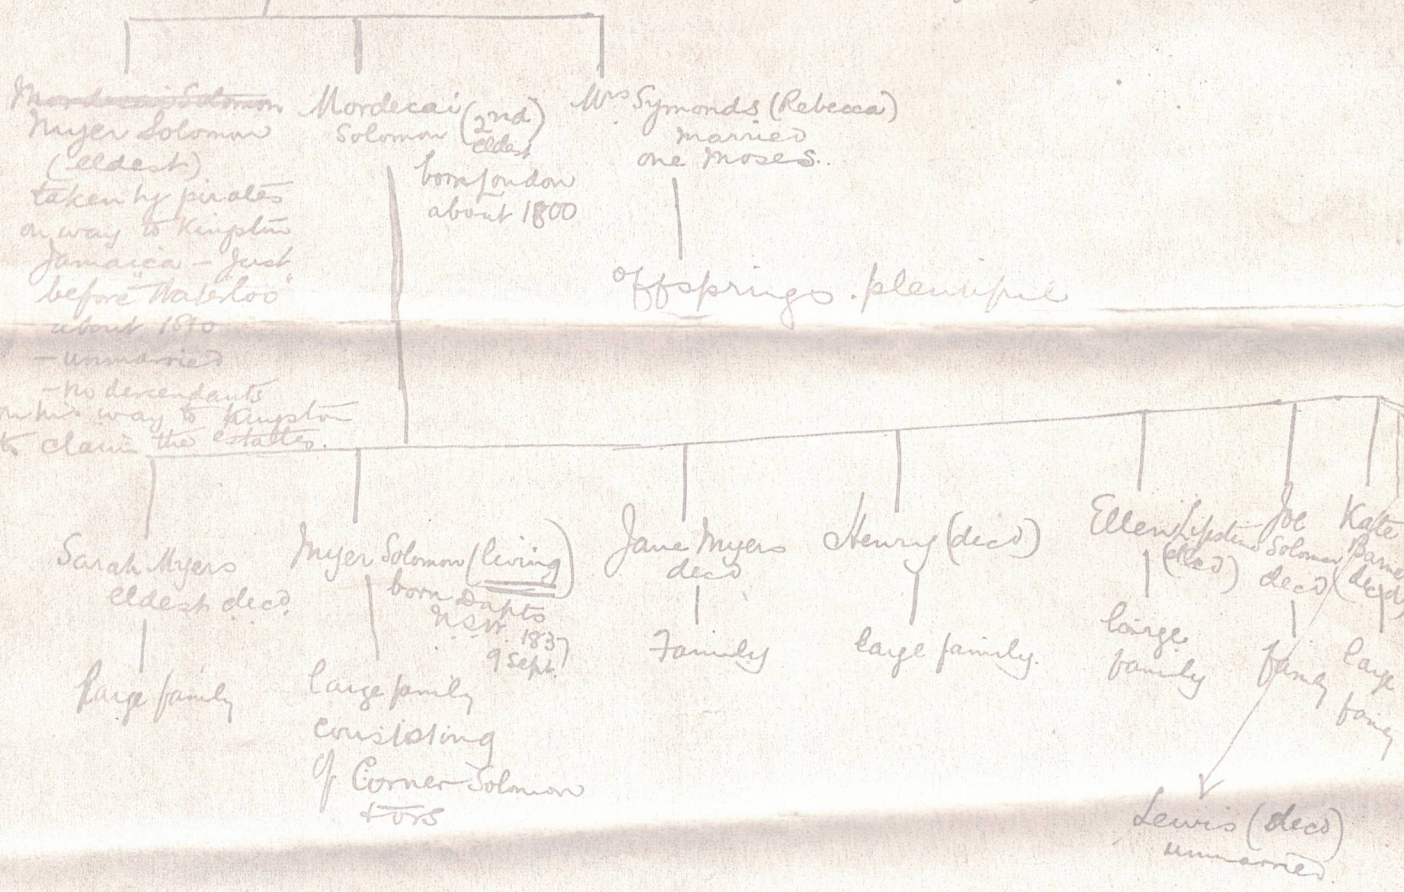 Mordecai Solomon
Myer Solomon
(eldest)
taken by pirates
on way to Kingston
Jamaica - Just
before "Waterloo"
about 1810
- unmarried
- no descendants
on his way to Kingston
to claim the estates.
Mordecai (2nd)
Solomon eldest
born London
about 1800
Mrs Symonds (Rebecca)
married
one Moses.
offsprings. plentiful
Sarah Myers
eldest decd.
large family
Myer Solomon (living)
born Dapto
N.S.W. 1837
9 Sept.
large family
consisting
of Corner Solomon
+ ors
Jane Myers
decd
Family
Henry (decd)
large family.
Ellen
(decd)
large
family
Joe
Solomon
decd
family
Kate
(decd)
large
family
Lewis (decd)
unmarried.